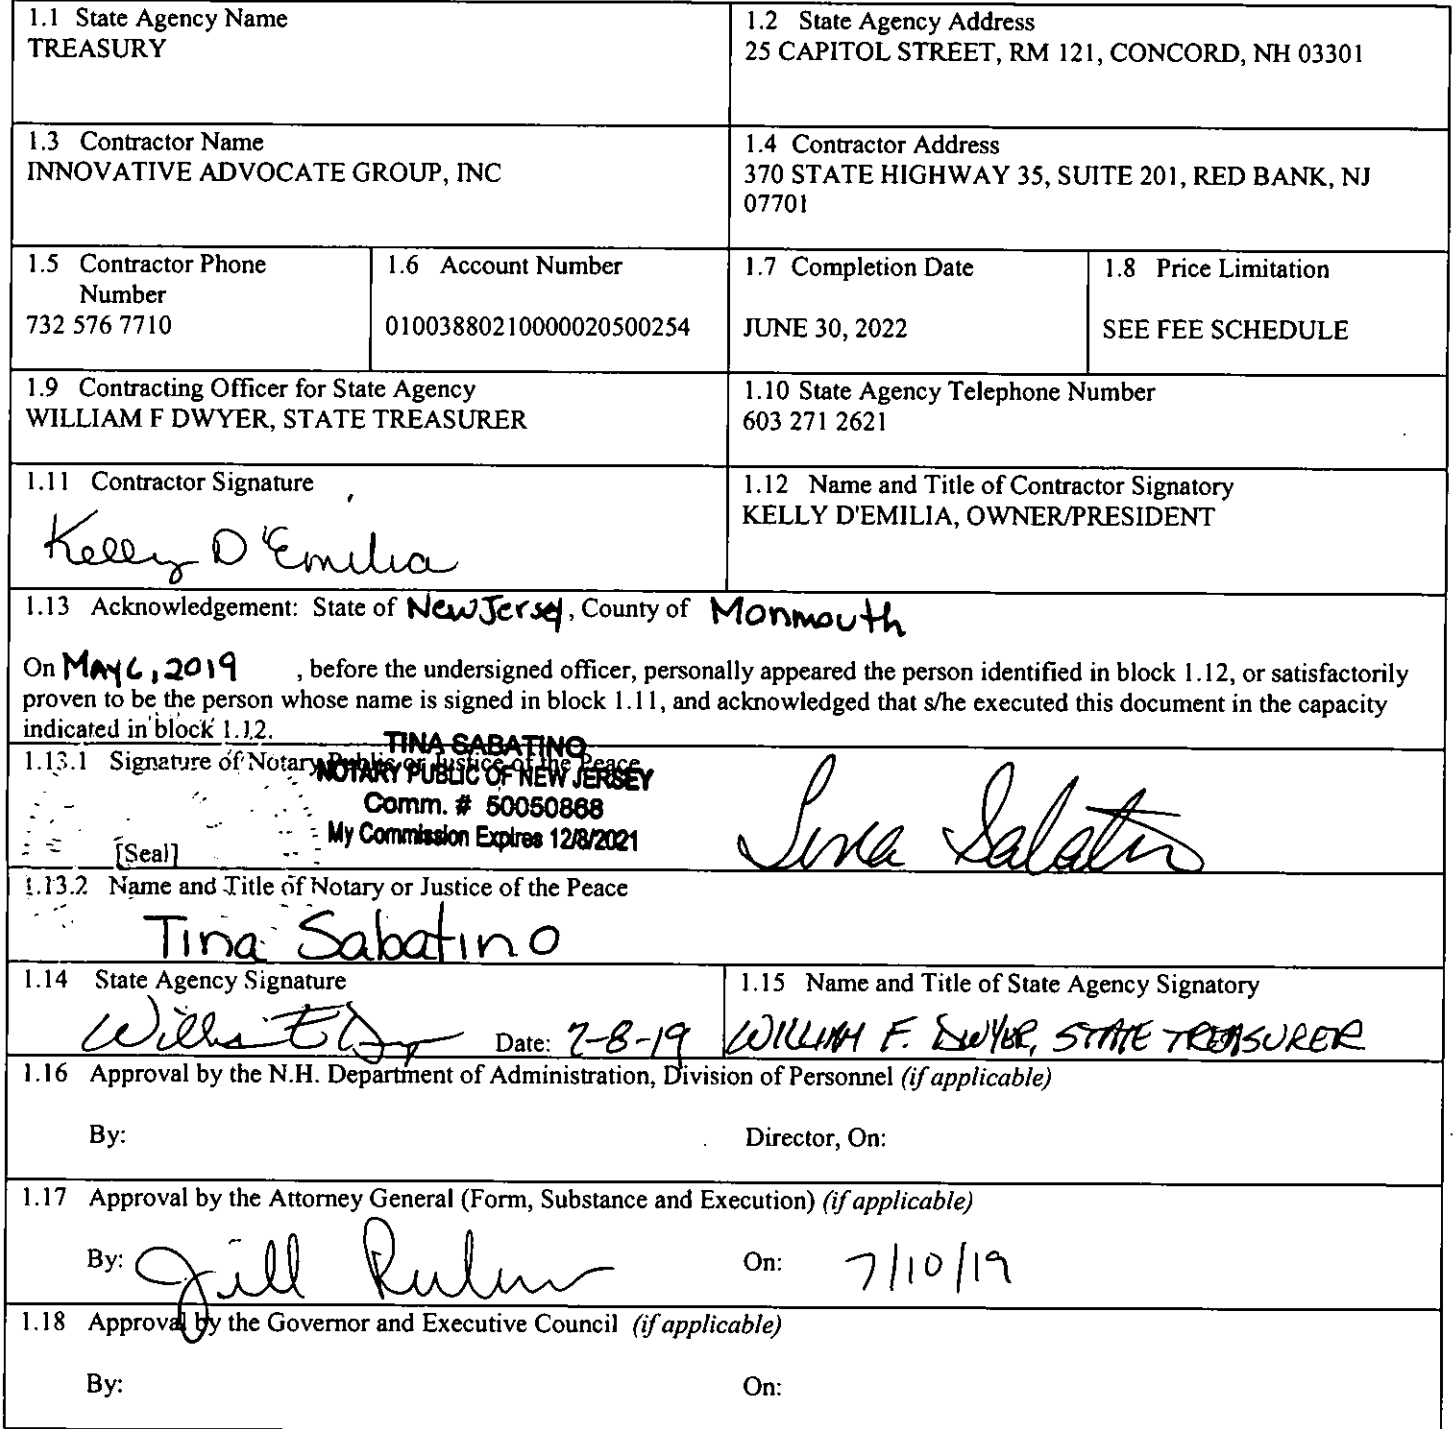 1.1 State Agency Name
TREASURY
1.2 State Agency Address
25 CAPITOL STREET, RM 121, CONCORD, NH 03301
1.3 Contractor Name
INNOVATIVE ADVOCATE GROUP, INC
1.4 Contractor Address
370 STATE HIGHWAY 35, SUITE 201, RED BANK, NJ
07701
1.5 Contractor Phone
Number
732 576 7710
1.6 Account Number
01003880210000020500254
1.7 Completion Date
JUNE 30, 2022
1.8 Price Limitation
SEE FEE SCHEDULE
1.9 Contracting Officer for State Agency
WILLIAM F DWYER, STATE TREASURER
1.10 State Agency Telephone Number
603 271 2621
1.11 Contractor Signature
Kelly D'Emilia
1.12 Name and Title of Contractor Signatory
KELLY D'EMILIA, OWNER/PRESIDENT
1.13 Acknowledgement: State of New Jersey, County of Monmouth
On May 6, 2019 , before the undersigned officer, personally appeared the person identified in block 1.12, or satisfactorily
proven to be the person whose name is signed in block 1.11, and acknowledged that s/he executed this document in the capacity
indicated in block 1.12.
1.13.1 Signature of Notary Public or Justice of the Peace
TINA SABATINO
NOTARY PUBLIC OF NEW JERSEY
Comm. # 50050868
My Commission Expires 12/8/2021
[Seal]
Tina Sabatino
1.13.2 Name and Title of Notary or Justice of the Peace
Tina Sabatino
1.14 State Agency Signature
Date: 7-8-19
1.15 Name and Title of State Agency Signatory
WILLIAM F. DWYER, STATE TREASURER
1.16 Approval by the N.H. Department of Administration, Division of Personnel (if applicable)
By:
Director, On:
1.17 Approval by the Attorney General (Form, Substance and Execution) (if applicable)
By: Jill
On: 7/10/19
1.18 Approval by the Governor and Executive Council (if applicable)
By:
On: